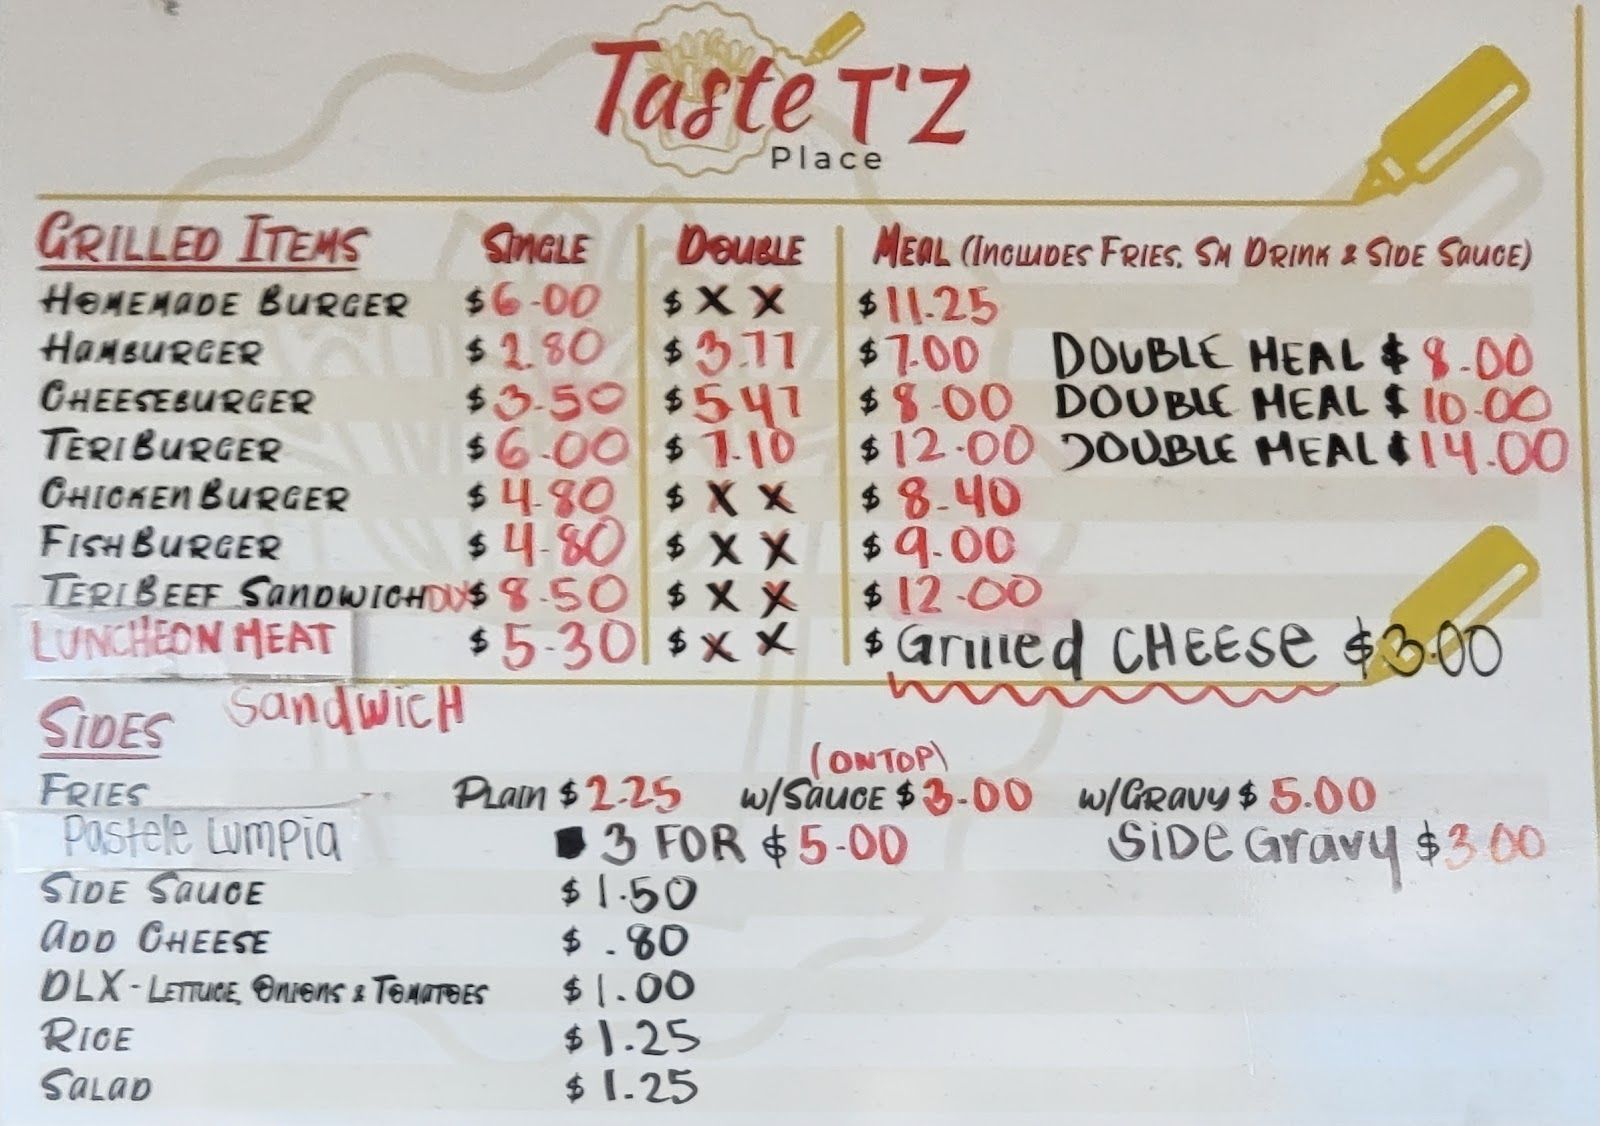 Taste T'Z
Place
GRILLED ITEMS SINGLE DOUBLE MEAL (INCLUDES FRIES, SM DRINK & SIDE SAUCE)
HOMEMADE BURGER $6.00 $ X X $11.25
HAMBURGER $2.80 $3.77 $7.00 DOUBLE MEAL $8.00
CHEESEBURGER $3.50 $5.47 $8.00 DOUBLE MEAL $10.00
TERI BURGER $6.00 $7.10 $12.00 DOUBLE MEAL $14.00
CHICKEN BURGER $4.80 $ X X $8.40
FISH BURGER $4.80 $ X X $9.00
TERI BEEF SANDWICH $8.50 $ X X $12.00
LUNCHEON MEAT $5.30 $ X X $ Grilled CHEESE $3.00
SandwicH
SIDES
(ON TOP)
FRIES PLAIN $2.25 W/SAUCE $3.00 W/GRAVY $5.00
Pastele Lumpia 3 FOR $5.00 SiDe Gravy $3.00
SIDE SAUCE $1.50
ADD CHEESE $.80
DLX - LETTUCE, ONIONS & TOMATOES $1.00
RICE $1.25
SALAD $1.25